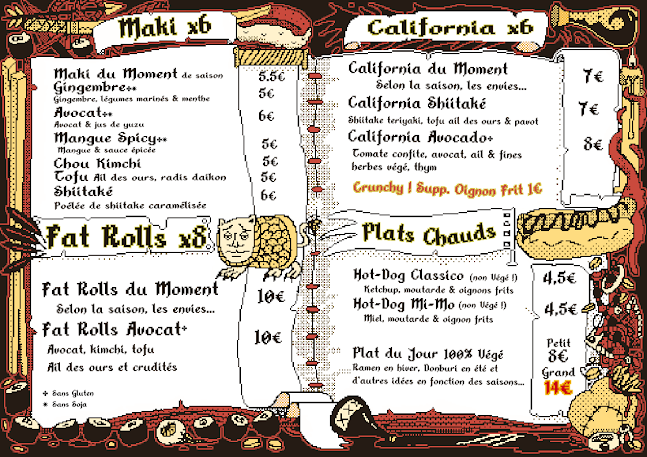 Maki x6
Maki du Moment de saison 5.5€
Gingembre+* 5€
Gingembre, légumes marinés & menthe
Avocat+* 6€
Avocat & jus de yuzu
Mangue Spicy+* 5€
Mangue & sauce épicée
Chou Kimchi 5€
Tofu Ail des ours, radis daikon 5€
Shiitaké 6€
Poêlée de shiitake caramélisée
Fat Rolls x8
Fat Rolls du Moment 10€
Selon la saison, les envies...
Fat Rolls Avocat+ 10€
Avocat, kimchi, tofu
Ail des ours et crudités
+ Sans Gluten
* Sans Soja
California x6
California du Moment 7€
Selon la saison, les envies...
California Shiitaké 7€
Shiitake teriyaki, tofu ail des ours & pavot
California Avocado+ 8€
Tomate confite, avocat, ail & fines
herbes végé, thym
Crunchy ! Supp. Oignon Frit 1€
Plats Chauds
Hot-Dog Classico (non Végé !) 4,5€
Ketchup, moutarde & oignons frits
Hot-Dog Mi-Mo (non Végé !) 4,5€
Miel, moutarde & oignon frits
Plat du Jour 100% Végé
Ramen en hiver, Donburi en été et
d'autres idées en fonction des saisons...
Petit
8€
Grand
14€